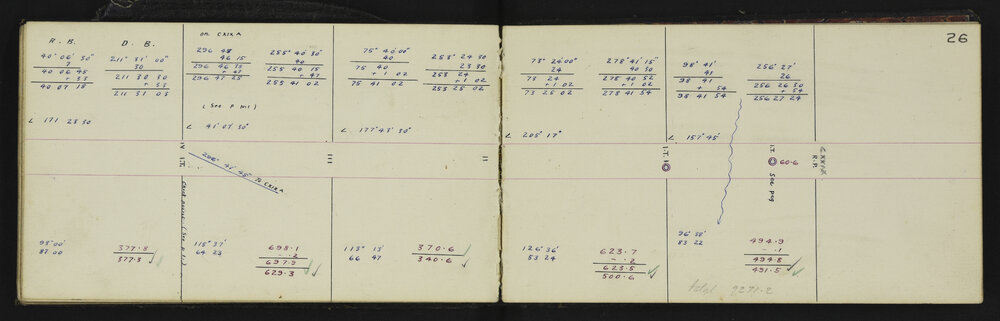 26
R. B.
D. B.
40° 06' 50"
7
40 06 45
+ 33
40 07 18
211° 31' 00"
30
211 30 30
+ 33
211 31 03
∠ 171 23 30
on CXIXA
296 48
46 15
296 46 38
+ 47
296 47 25
255° 40' 30"
40
255 40 15
+ 47
255 41 02
(See p 1)
∠ 41° 07' 30"
75° 40' 00"
40
75 40
+ 1 02
75 41 02
253° 24 30
23 30
253 24
+ 1 02
253 25 02
∠ 177° 43' 30"
73° 24' 00"
24
73 24
+ 1 02
73 25 02
278° 41' 15"
40 30
278 40 52
+ 1 02
278 41 54
∠ 205° 17'
98° 41'
41
98 41
+ 54
98 41 54
256° 27'
26
256 26 30
+ 54
256 27 24
∠ 157° 45'
IV I.T.
206° 47' 45" To CXIXA
III
II
I.T. I
I.T.
60.6
See pag
CXXIX
R.P.
93° 00'
87 00
377.8
377.3
115° 37'
64 23
698.1
- .2
697.9
629.3
113° 13'
66 47
370.6
340.6
126° 36'
53 24
623.7
- .2
623.5
500.6
96° 38'
83 22
494.9
- .1
494.8
491.5
total 9271.2